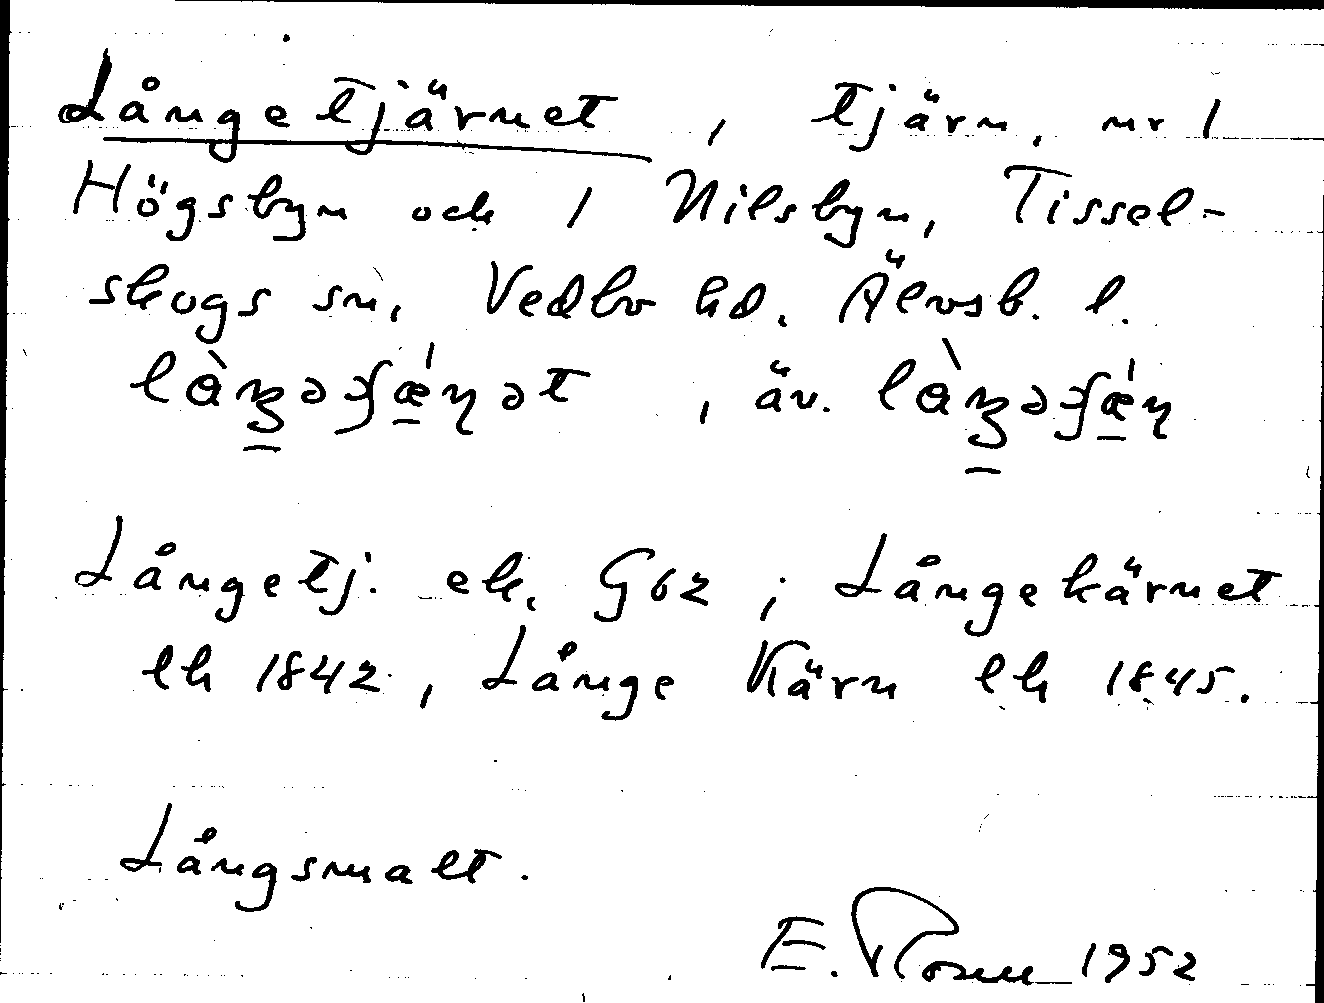 Långetjärnet, tjärn, nr 1
Högsbyn och 1 Nilsbyn, Tissel-
skogs sn, Vedbo hd. Älvsb. l.
, äv.
Långetj. ek. G62; Långekärnet
lh 1842, Långe Kärn lh 1845.
Långsmalt.
E. 1952